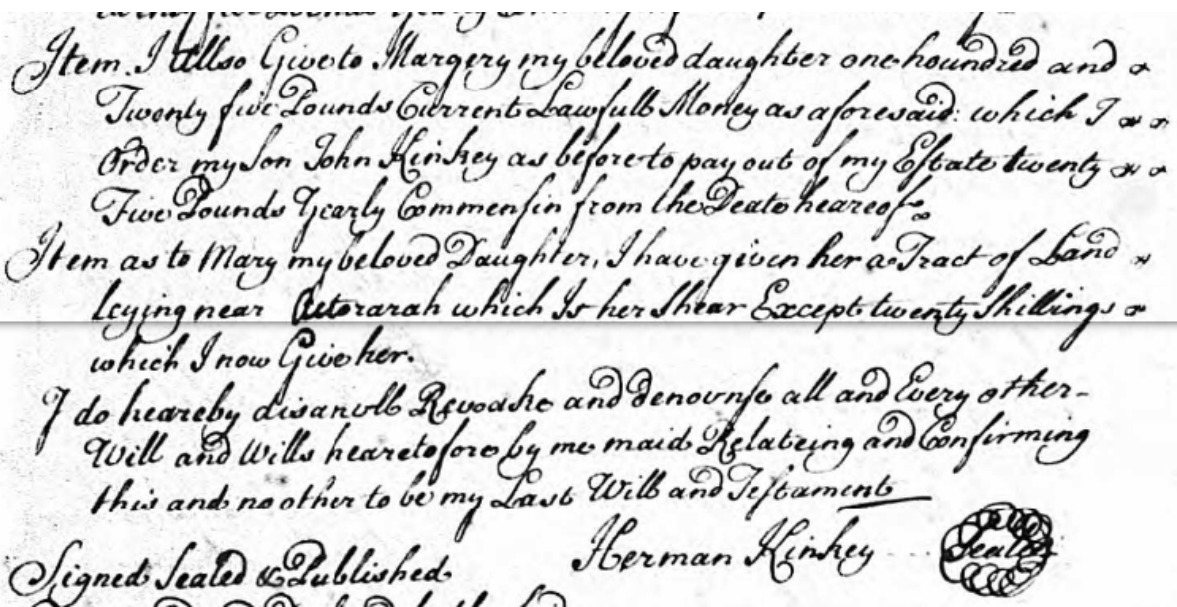 Item. I allso Give to Margery my beloved daughter one houndred and
Twenty five Pounds Current Lawfull Money as aforesaid: which I
Order my Son John Kinkey as before to pay out of my Estate twenty
Five Pounds Yearly Commensin from the Deate heareof
Item as to Mary my beloved Daughter, I have given her a Tract of Land
leying near which Is her Shear Except twenty Shillings
which I now Give her.
I do heareby disanull Revoake and denounse all and Every other
Will and Wills hearetofore by me maid Relateing and Confirming
this and no other to be my Last Will and Testament
Herman Kinkey Seale
Signed Sealed & Published